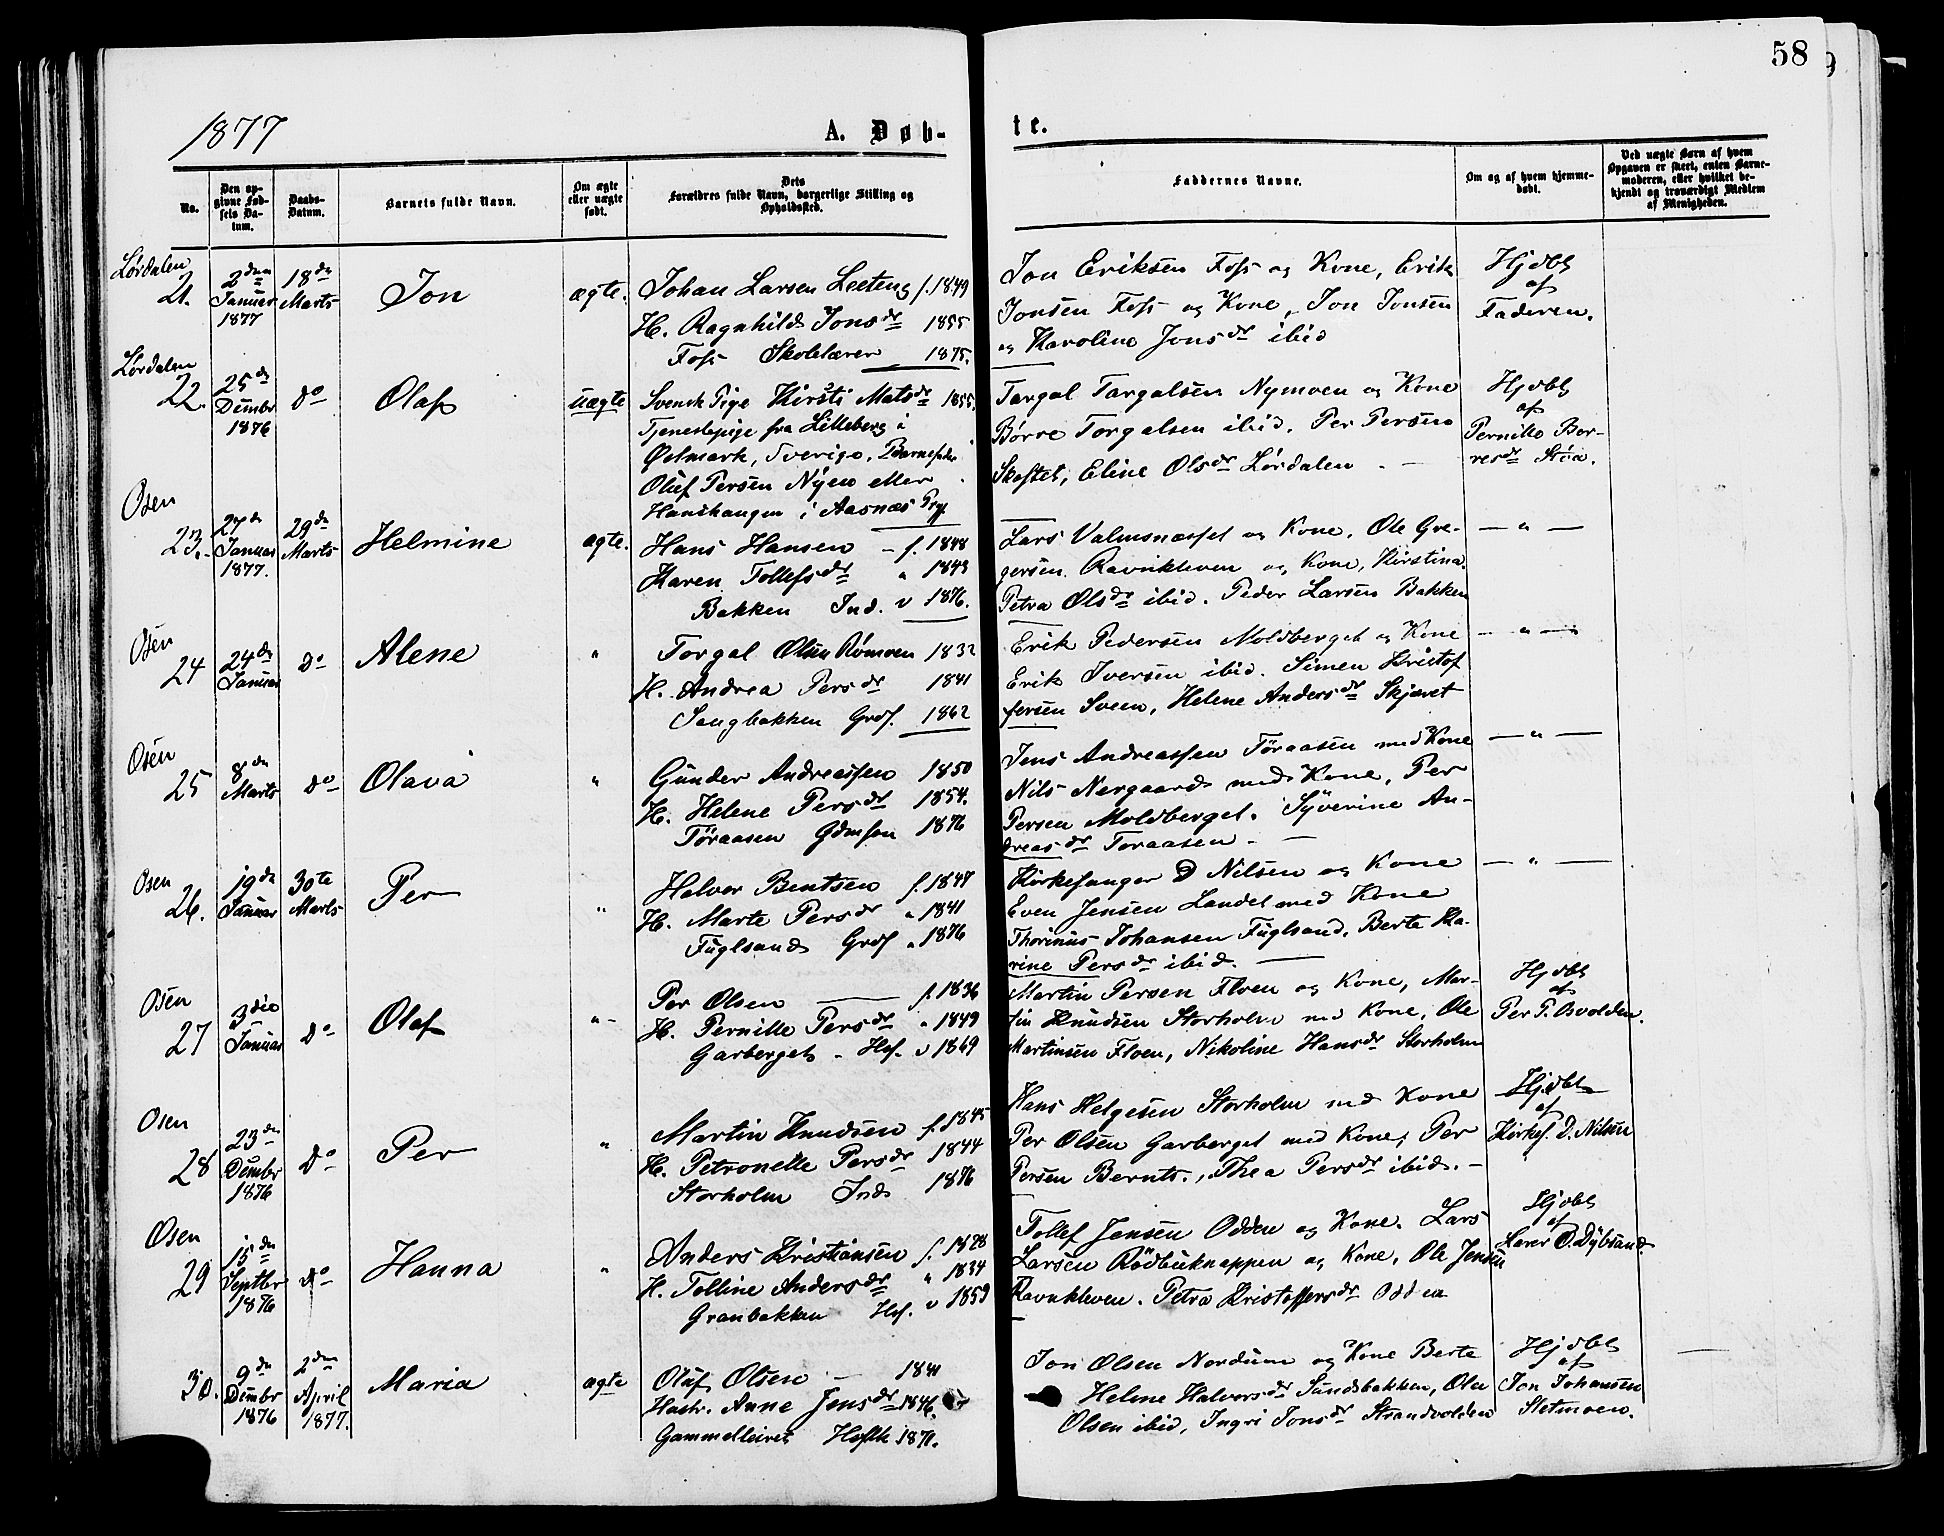 58
9
1877
A. Døb-
te.
No.
Den op-
givne Fød-
sels Da-
tum.
Daabs-
Datum.
Barnets fulde Navn.
Om ægte
eller uægte
født.
Dets
Forældres fulde Navn, borgerlige Stilling og
Opholdssted.
Faddernes Navne.
Om og af hvem hjemme-
døbt.
Ved uægte Børn af hvem
Opgaven er skeet, enten Barne-
moderen, eller hvilket be-
kjendt og troværdigt Medlem
af Menigheden.
Lørdalen
21.
2den
Januar
1877
18de
Marts
Jon
ægte.
Johan Larsen Leeteng f. 1849
H. Ragnhild Jonsdr 1855
Foss Skolelærer 1875.
Jon Eriksen Foss og Kone, Erik
Jonsen Foss og Kone, Jon Jonsen
og Karoline Jonsdr ibid
Hjdbt
af
Faderen.
Lørdalen
22.
25de
Dcmbr
1876
do
Olaf
uægte
Svensk Pige Kirsti Matsdr 1855.
Tjenestepige fra Lilleberg i
Øelmark, Sverige. Barnefader
Oluf Persen Nyen eller
Hanshaugen i Aasnæs Pgj.
Torgal Torgalsen Nymoen og Kone
Børre Torgalsen ibid. Per Persen
Skaftet, Eline Olsdr Lørdalen
Hjdbt
af
Pernille Bor-
resdr Støa.
Osen
23.
27de
Januar
1877.
29de
Marts
Helmine
ægte.
Hans Hansen f. 1848
Karen Tollefsdr " 1843
Bakken Ind. v 1876.
Lars Valmsnæsset og Kone. Ole Gre-
gersen Ravnkleven og Kone, Kirstina
Petra Olsdr ibid. Peder Larsen Bakken
— " —
Osen
24
24de
Januar
do
Alene
"
Torgal Olsen Rømoen 1832
H. Andrea Persdr 1841
Saugbakken Grdf. 1862
Erik Pedersen Moldberget og Kone
Erik Iversen ibid. Simen Kristof
fersen Sveen, Helene Andersdr Skjæret
— " —
Osen
25
8de
Marts
do
Olava
"
Gunder Andreassen 1850
H. Helene Persdr 1854.
Tøraasen Gdmsøn 1876
Jens Andreassen Tøraasen med Kone
Nils Nergaard med Kone, Per
Persen Moldberget. Syverine An-
dreasdr Toraasen
— " —
Osen
26.
19de
Januar
30te
Marts
Per
"
Halvor Bentsen f. 1847
H. Marte Persdr " 1841
Fuglsand Grdf " 1876
Kirkesanger D Nilsen og Kone
Even Jensen Landet med Kone
Thorinus Johansen Fuglsand. Berte Ka-
rine Persdr ibid.
— " —
Osen
27
3die
Januar
do
Olaf
"
Per Olsen f. 1836
H. Pernille Persdr " 1849
Garberget Hsf. v 1869
Martin Persen Floen og Kone, Mar-
tin Knudsen Storholm med Kone, Ole
Martinsen Floen, Nikoline Hansdr Storholm
Hjdbt
af
Per P. Osvolden.
Osen
28
23de
Dcmbr
1876
do
Per
"
Martin Knudsen f. 1845
H. Petronelle Persdr 1844
Storholm Inds 1876
Hans Helgesen Storholm med Kone
Per Olsen Garberget med Kone, Per
Persen Bernts., Thea Persdr ibid.
Hjdbt
af
Kirkes. D. Nilsen
Osen
29
15de
Septbr
1876
do
Hanna
"
Anders Kristiansen f. 1828
H. Tolline Andersdr " 1834
Granbakken Hsf. v 1859
Tollef Jensen Odden og Kone. Lars
Larsen Rødbuknappen og Kone, Ole Jensen
Ravnkleven. Petra Kristoffersdr Odden
Hjdbt
af
Karen O. Dybsand
30.
9de
Dcmbr
1876
2den
April
1877.
Maria
ægte
Oluf Olsen 1841
Hustr. Anne Jensdr 1846.
Gammelleiret Hsflk 1871.
Jon Olsen Nordum og Kone Berte
Helene Halvorsdr Sundsbakken, Ole
Olsen ibid, Ingri Jonsdr Strandvolden
Hjdbt
af
Jon Johansen
Sletmoen.